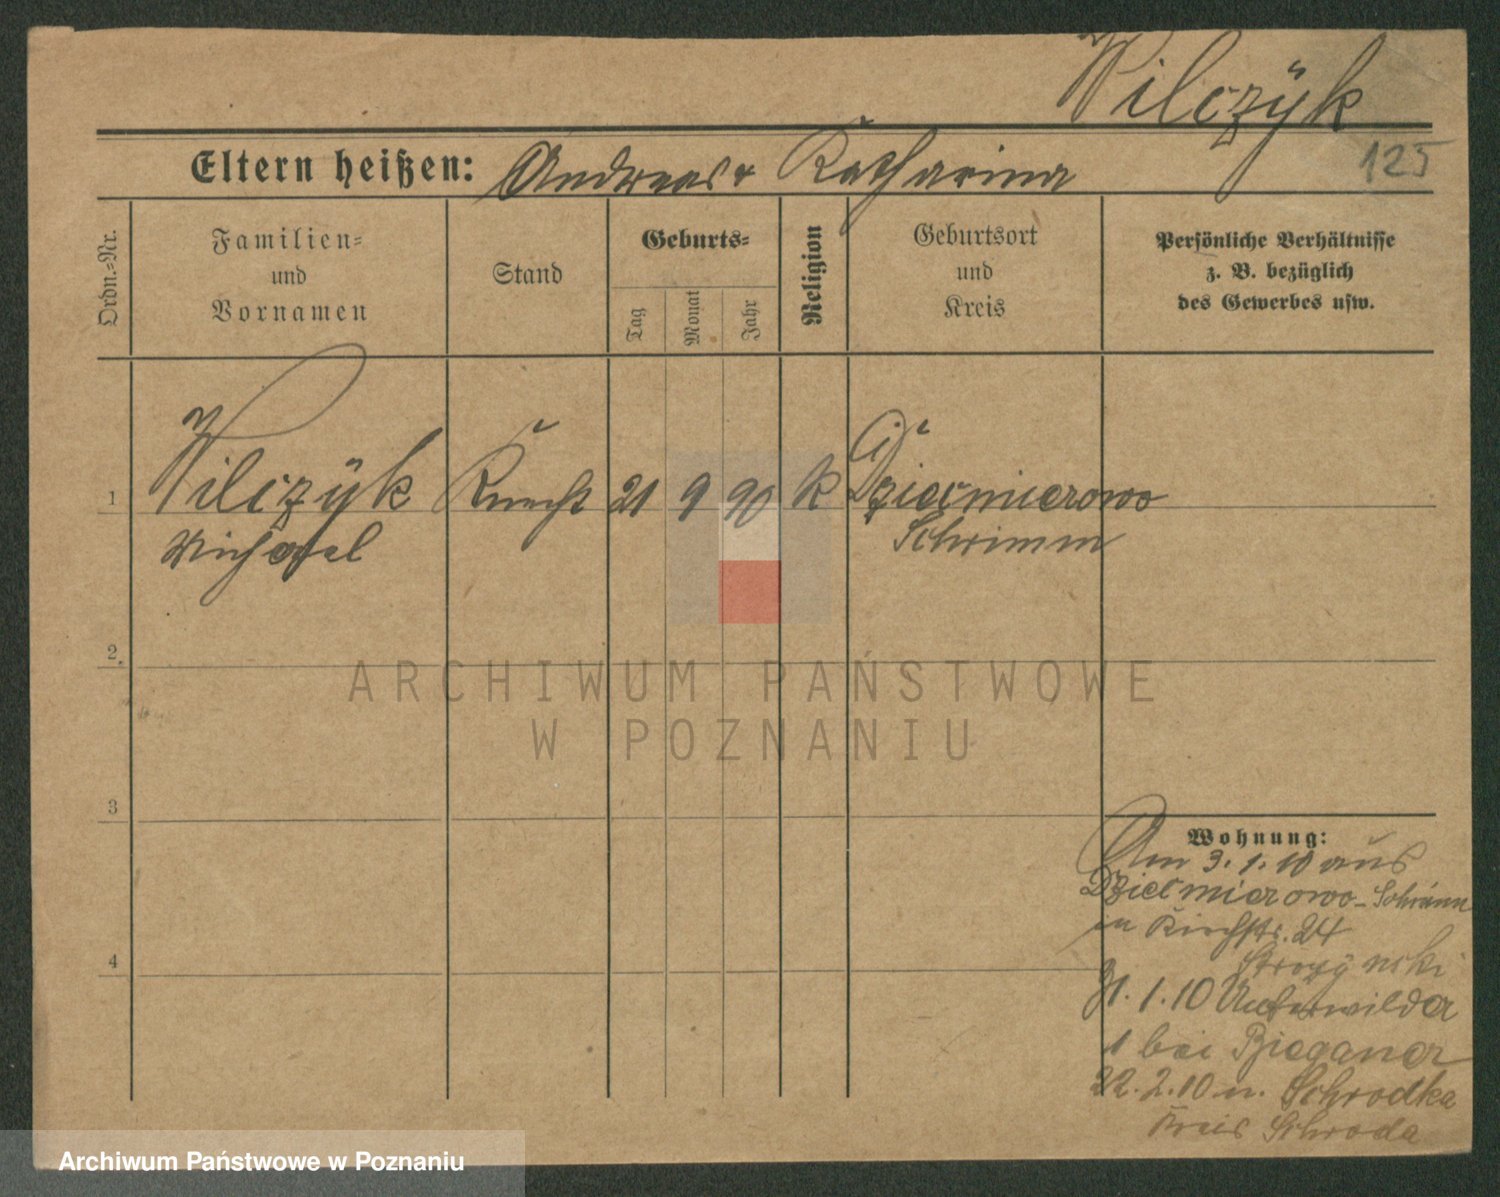 Wilczÿk
125
Eltern heißen: Andreas & Katharina
Ordn.-Nr.
Familien-
und
Vornamen
Stand
Geburts-
Tag
Monat
Jahr
Religion
Geburtsort
und
Kreis
Persönliche Verhältnisse
z. B. bezüglich
des Gewerbes usw.
1 Wilczÿk Knecht 21 9 90 K Dziecmierowo
Michael Schrimm
ARCHIWUM PAŃSTWOWE
W POZNANIU
2.
3
4
Wohnung:
Am 3.1.10 aus
Dziecmierowo - Schrimm
in Kirchstr. 24
31.1.10 Unterwilda
1 bei Bieganer
22.2.10 n. Schrodka
Kreis Schroda
Archiwum Państwowe w Poznaniu